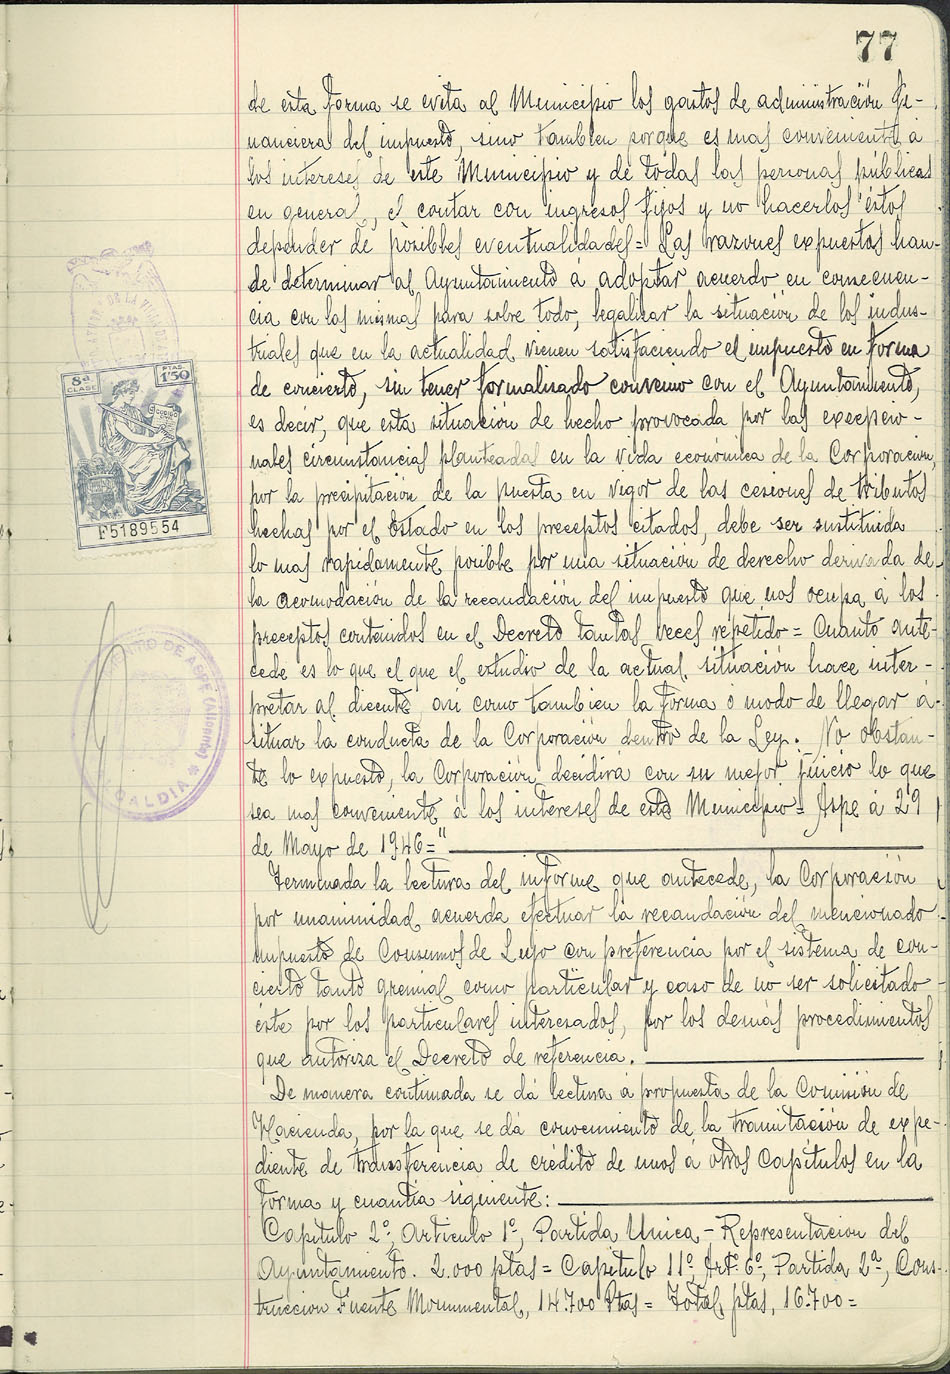 77
de esta forma se evita al Municipio los gastos de administración fi-
nanciera del impuesto, sino tambien porque es mas conveniente á
los intereses de este Municipio y de todas las personas públicas
en general, el contar con ingresos fijos y no hacerlos éstos
depender de posibles eventualidades= Las razones expuestas han
de determinar al Ayuntamiento á adoptar acuerdo en consecuen-
cia con las mismas para sobre todo, legalizar la situación de los indus-
triales que en la actualidad vienen satisfaciendo el impuesto en forma
de concierto, sin tener formalizado convenio con el Ayuntamiento,
es decir, que esta situación de hecho provocada por las excepcio-
nales circunstancias planteadas en la vida económica de la Corporación,
por la precipitación de la puesta en vigor de las cesiones de tributos
hechas por el Estado en los preceptos citados, debe ser sustituida
lo mas rapidamente posible por una situación de derecho derivada de
la acomodación de la recaudación del impuesto que nos ocupa á los
preceptos contenidos en el Decreto tantas veces repetido= Cuanto ante-
cede es lo que el que el estudio de la actual situación hace inter-
pretar al dicente, asi como tambien la forma o modo de llegar á
situar la conducta de la Corporación dentro de la Ley. No obstan-
te lo expuesto, la Corporación decidira con su mejor juicio lo que
sea mas conveniente á los intereses de este Municipio= Aspe á 29
de Mayo de 1946="
Terminada la lectura del informe que antecede, la Corporación
por unanimidad acuerda efectuar la recaudación del mencionado
impuesto de Consumos de Lujo con preferencia por el sistema de con-
cierto tanto gremial como particular y caso de no ser solicitado
este por los particulares interesados, por los demás procedimientos
que autoriza el Decreto de referencia.
De manera continuada se dá lectura á propuesta de la Comisión de
Hacienda, por la que se dá conocimiento de la tramitación de expe-
diente de transferencia de crédito de unos a otros Capítulos en la
forma y cuantia siguiente:
Capitulo 2º, Articulo 1º, Partida Unica - Representacion del
Ayuntamiento. 2.000 ptas= Capitulo 11º, Artº 6º, Partida 2ª, Cons-
truccion Fuente Monumental, 14.700 Ptas= Total ptas, 16.700=
8ª CLASE
PTAS. 1'50
F5189554
AYUNTAMIENTO DE ASPE (Alicante)
ALCALDIA